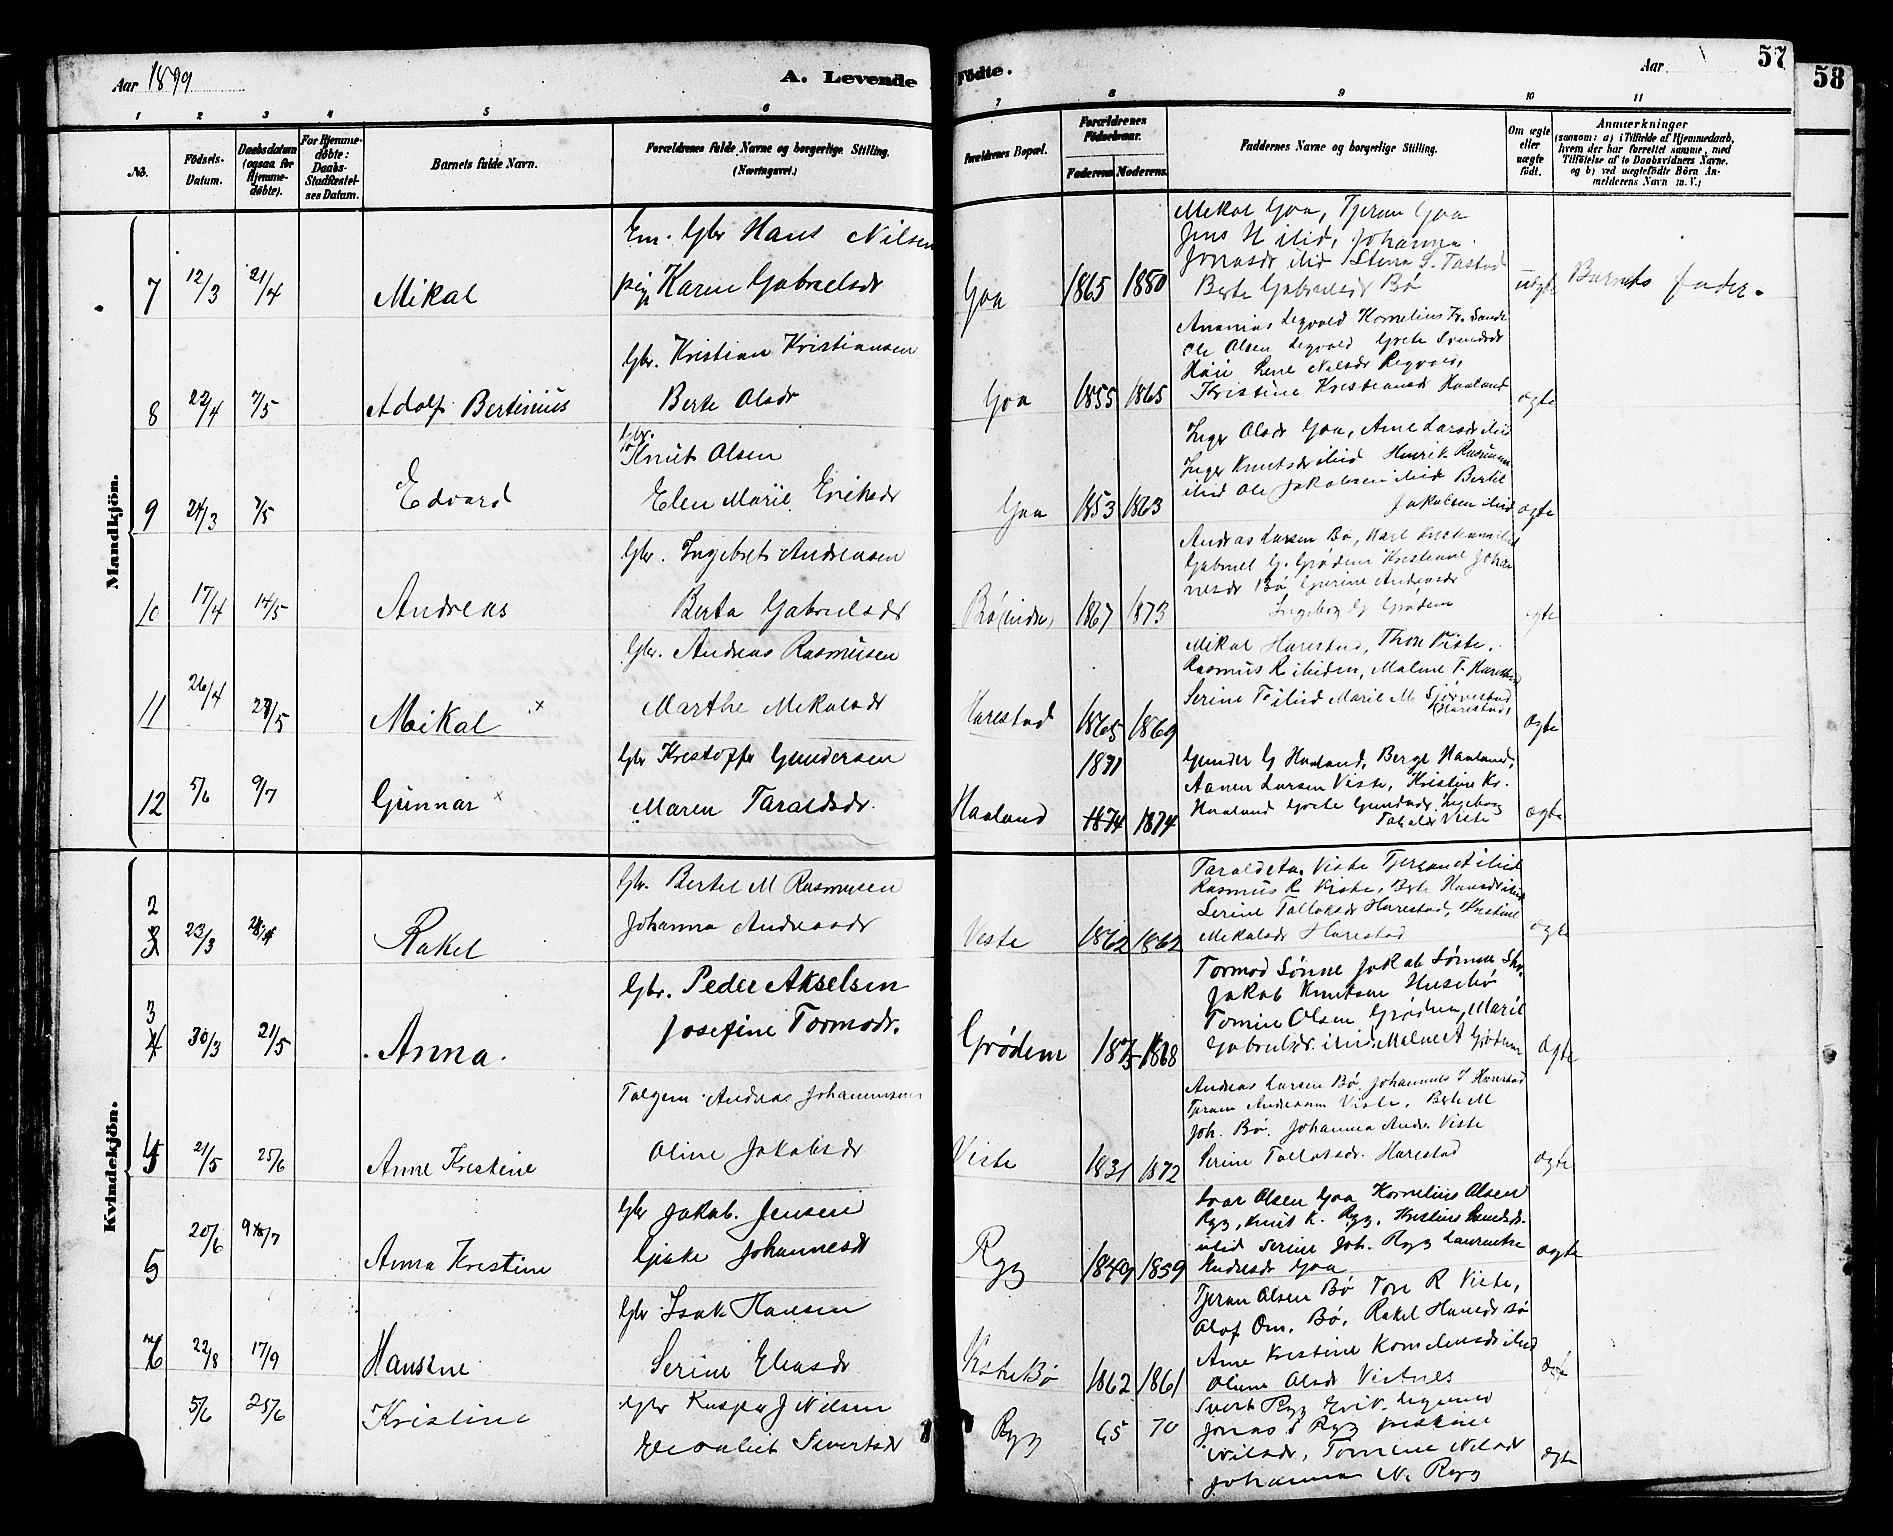 Aar 1899
A. Levende Födte.
Aar
57
58
1 2 3 4 5 6 7 8 9 10 11
No.
Födsels-Datum.
Daabsdatum (ogsaa for Hjemmedöbte).
For Hjemmedöbte: Daabs-Stadfæstelses Datum.
Barnets fulde Navn.
Forældrenes fulde Navne og borgerlige Stilling. (Næringsvei.)
Forældrenes Bopæl.
Forældrenes Födselsaar.
Faderens. Moderens.
Faddernes Navne og borgerlige Stilling.
Om ægte eller uægte födt.
Anmærkninger
(saasom: a) i Tilfælde af Hjemmedaab, hvem der har forrettet samme, med Tilföielse af to Daabsvidners Navne. og b) ved uægtefödte Börn Anmelderens Navn m. V.)
Mandkjön.
7 12/3 21/4 Mikal
Em. Gbr Hans Nilsen
pig Karen Gabrielsdr
Goa 1865 1880
Mikal Goa, Tjeran Goa
Jens H ibid, Johanna
Jonasdr ibid Stina S. Tastad
Berte Gabrielsdr Bø
uægte Barnets fader.
8 22/4 7/5 Adolf Bertinius
Gbr. Kristian Kristiansen
Berte Olsdr
Goa 1855 1865
Ole Olsen
Kristine Kristiansdr Haaland
ægte
9 24/3 7/5 Edvard
Gbr.
Knut Olsen
Elen Marie Eriksdr
Goa 1853 1863
Inger Olsdr Goa, Ane Larsdr ibid
Inger Knutsdr ibid Henrik Rasmusen
ibid Ole Jakobsen ibid Bertil
Jakobsen ibid
ægte
10 17/4 14/5 Andreas
Gbr. Ingebret Andreasen
Berta Gabrielsdr
Bø (indre) 1867 1873
Andreas Larsen Bø, Karl
Gabriel G. Grødem Kristiane Johan
nesdr Bø Gurine Andreasdr
Ingeborg G Grødem
ægte
11 26/4 28/5 Mikal x
Gbr. Andreas Rasmusen
Marthe Mikalsdr
Harestad 1865 1869
Mikal Harestad, Thore Viste,
Rasmus R ibiden, Malene T. Harestad
Serine T ibid Marie M
Harestad,
ægte
12 5/6 9/7 Gunnar x
Gbr Kristoffer Gundersen
Maren Taraldsdr.
Haaland 1871 1874 1874
Gunder G Haaland, Berge Haaland,
Larsen Viste, Kristine Kr.
Haaland Grete Gundersdr. Ingeborg
Viste
ægte
Kvindekjön.
2 3 23/3 Rakel
Gbr. Bertel M Rasmusen
Johanna Andreasdr
Viste 1862 1862
Tarald Viste Tjeran A ibid
Rasmus R Viste, Berte Hansdr ibid
Serine Tollaksdr Harestad, Kristine
Mikalsdr Harestad
ægte
3 4 30/3 21/5 Anna.
Gbr. Peder Akselsen
Josefine Tormodr.
Grødem 1875 1868
Tormod Sønne Jakob Sømme
Jakob Knutsen Husebø
Tomine Olsen Grødem, Marie
Gabrielsdr ibid. Malene A Grødem
ægte
4 5 21/5 25/6 Anne Kristine
Andreas Johannesen
Oline Jakobsdr
Viste 1831 1872
Andreas Larsen Bø. Johannes T Harestad
Tjeran Andreasen Viste, Berte M
Joh. Bø. Johanna Andr. Viste
Serine Tollaksdr. Harestad
ægte
5 20/6 9/7 Anna Kristine
Gbr Jakob Jensen
Johannesdr
Ryg 1849 1859
Ivar Olsen Goa Kornelius Olsen
Ryg, Knut K. Ryg, Kristine
ibid Serine Joh. Ryg Laurentse
Andresdr Goa
ægte
6 22/8 17/9 Hansine
Gbr Isak Hansen
Serine Eliasdr
Bø 1862 1861
Tjeran Olsen Bø Tore R Viste,
Olof Om. Bø, Rakel Hansdr Bø
Ane Kristine Korneliusdr ibid
Oline Olsdr Vistnes
ægte
5/6 25/6 Kristine
Gbr Kasper J Nilsen
Sivertsdr
Ryg 65 70
Sivert Ryg Erik
Jonas Ryg Kristine
Nilsdr, Tomine Nilsdr
Johanna N. Ryg
ægte